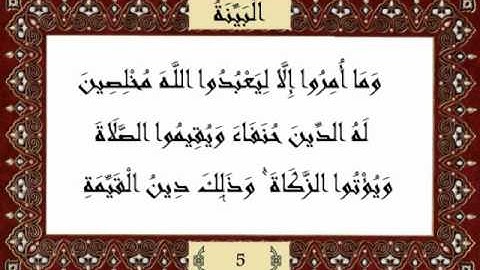 البَيِّنَةُ
وَمَا أُمِرُوا إِلَّا لِيَعْبُدُوا اللَّهَ مُخْلِصِينَ
لَهُ الدِّينَ حُنَفَاءَ وَيُقِيمُوا الصَّلَاةَ
وَيُؤْتُوا الزَّكَاةَ ۚ وَذَٰلِكَ دِينُ الْقَيِّمَةِ
5